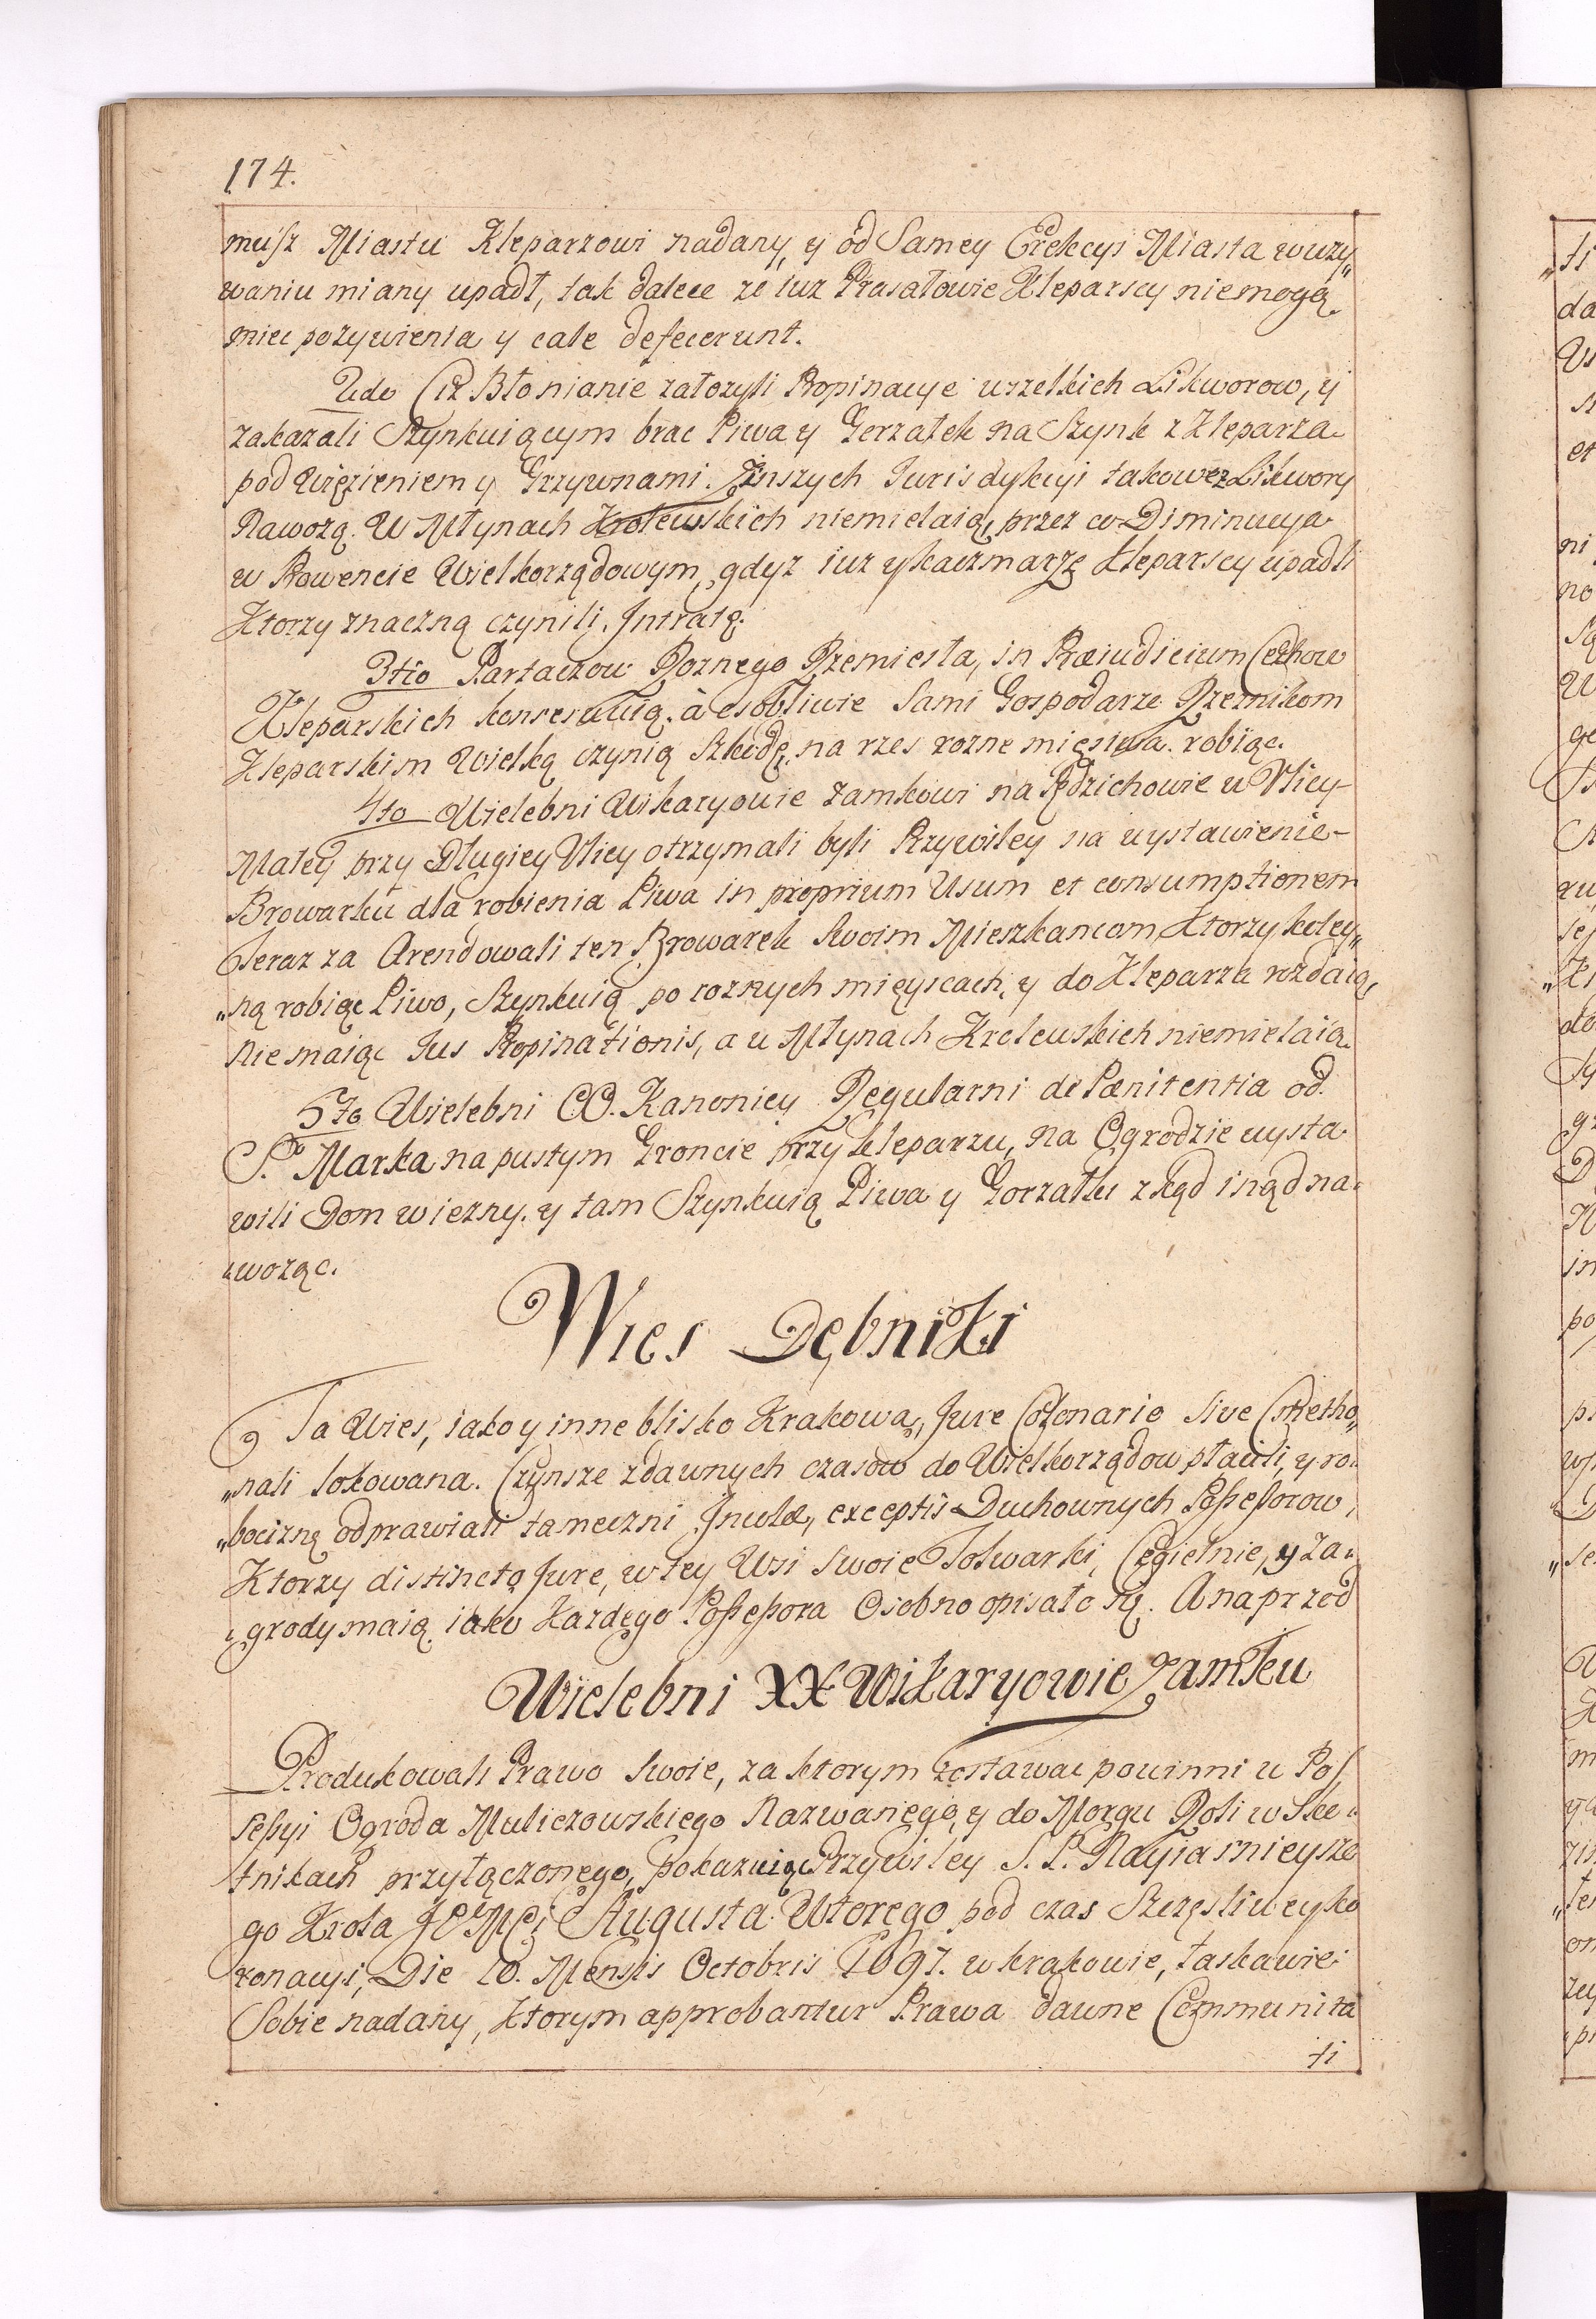 174.
musz Miastu Kleparzowi nadany, y od Samey Erekcyi Miasta w uzy„
waniu miany upadł, tak dalece ze iuz Prasałowie Kleparscy niemogą
miec pozywienia y cale defecerunt.
2do Ciz Błonianie załozyli Propinacye wszelkich Likworow, y
zakazali Szynkuiącym brac Piwa y Gorzałek na Szynk z Kleparza
pod Więzieniem y Grzywnami. Zinszych Jurisdykcyi takowez Likwory
Nawozą. W Młynach Krolewskich niemielaią, przez co Diminucya
w Prowencie Wielkorządowym, gdyz iuz y kaczmarze Kleparscy upadli
Ktorzy znaczną czynili Intratę.
3tio Partaczow Roznego Rzemiesła, in Præiudicium Cechow
Kleparskich konserwuią. à osobliwie Sami Gospodarze Rzeznikom
Kleparskim Wielką czynią Szkodę, na rzes rozne mięsiwa robiąc.
4to Wielebni Wikaryowie Zamkowi na Pędzichowie w Vlicy
Małey przy Długiey Vlicy otrzymali byli Przywiley na wystawienie
Browarku dla robienia Piwa in proprium Usum et consumptionem
Teraz za Arendowali ten Browarek Swoim Mieszkancom Ktorzy koley„
„ną robiąc Piwo, Szynkuią po roznych mieyscach, y do Kleparza rozdaią,
nie maiąc Jus Propinationis, a w Młynach Krolewskich niemielaią.
5to Wielebni OO. Kanonicy Regularni de Pænitentia od
S.o Marka na pustym Groncie przy Kleparzu, na Ogrodzie wysta
wili Dom wiezny. y tam Szynkuią Piwa y Gorzałki zkąd inąd na„
„wożąc.
Wies Dębniki
Ta Wies, iako y inne blisko Krakowa, Jure Colonario Sive Cmetho„
„nali lokowana. Czynsze zdawnych czasow do Wielkorządow płacili, y ro„
„bociznę odprawiali tameczni Incolæ, exceptis Duchownych Possessorow,
Ktorzy distincto Jure, w tey Wsi Swoie Folwarki, Cegielnie, y Za„
„grody maią, iako Kazdego Possessora Osobno opisało się. A naprzod
Wielebni XX Wikaryowie Zamku
Produkowali Prawo Swoie, za ktorym zostawac powinni w Pos„
sessyi Ogroda Muliczowskiego Nazwanego, y do Morgu Roli w Sko„
tnikach przyłączonego, pokazuiąc Przywiley S. P. Nayiasnieysze
go Krola JoMci Augusta Wtorego pod czas Szczęsliwey Ko
ronacyi, Die 10. Mensis Octobris 1697. w Krakowie, łaskawie
Sobie nadany, Ktorym approbantur Prawa dawne Communita
ti